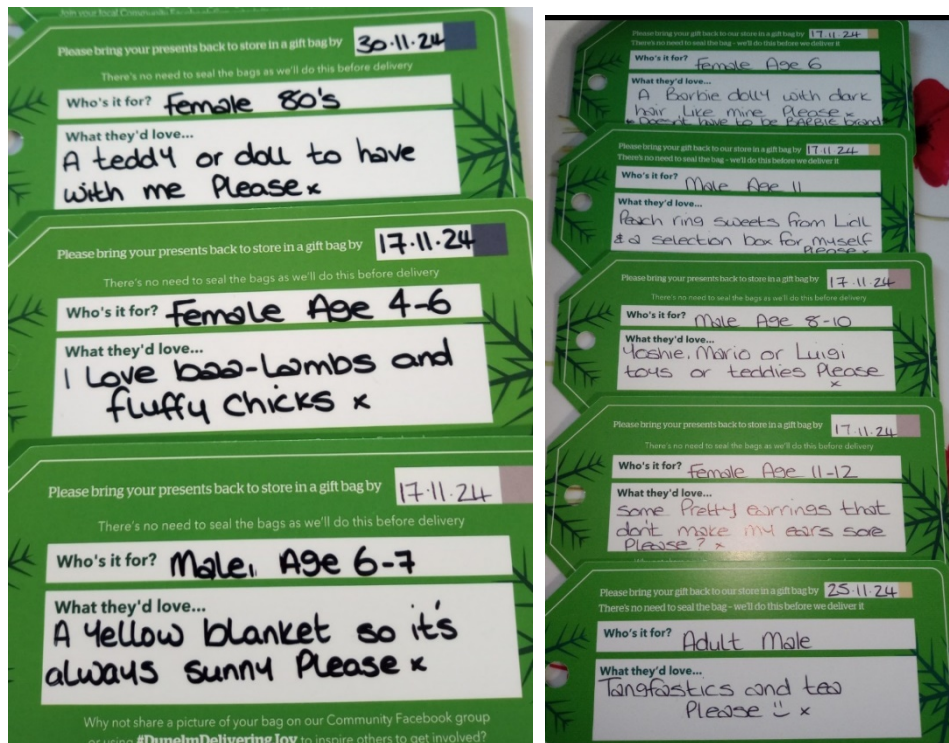 Join your local Community Facebook
Please bring your presents back to store in a gift bag by 30.11.24
There's no need to seal the bags as we'll do this before delivery
Who's it for? Female 80's
What they'd love...
A teddy or doll to have
with me Please x
Please bring your presents back to store in a gift bag by 17.11.24
There's no need to seal the bags as we'll do this before delivery
Who's it for? Female Age 4-6
What they'd love...
I Love baa-lambs and
fluffy chicks x
Please bring your presents back to store in a gift bag by 17.11.24
There's no need to seal the bags as we'll do this before delivery
Who's it for? Male, Age 6-7
What they'd love...
A yellow blanket so it's
always sunny Please x
Why not share a picture of your bag on our Community Facebook group
or using #DunelmDeliveringJoy to inspire others to get involved?
Please bring your gift back to our store in a gift bag by 17.11.24
There's no need to seal the bag – we'll do this before we deliver it
Who's it for? Female Age 6
What they'd love...
A Barbie dolly with dark
hair like mine Please x
* Doesn't have to be BARBIE brand*
Please bring your gift back to our store in a gift bag by 17.11.24
There's no need to seal the bag – we'll do this before we deliver it
Who's it for? Male Age 11
What they'd love...
Peach ring sweets from Lidl
& a selection box for myself
Please x
Please bring your presents back to store in a gift bag by 17.11.24
There's no need to seal the bags as we'll do this before delivery
Who's it for? Male Age 8-10
What they'd love...
Yoshie, Mario or Luigi
toys or teddies Please
x
Please bring your presents back to store in a gift bag by 17.11.24
There's no need to seal the bags as we'll do this before delivery
Who's it for? Female Age 11-12
What they'd love...
some Pretty earrings that
don't make my ears sore
Please ? x
Please bring your gift back to our store in a gift bag by 25.11.24
There's no need to seal the bag – we'll do this before we deliver it
Who's it for? Adult Male
What they'd love...
Tangfastics and tea
Please :) x